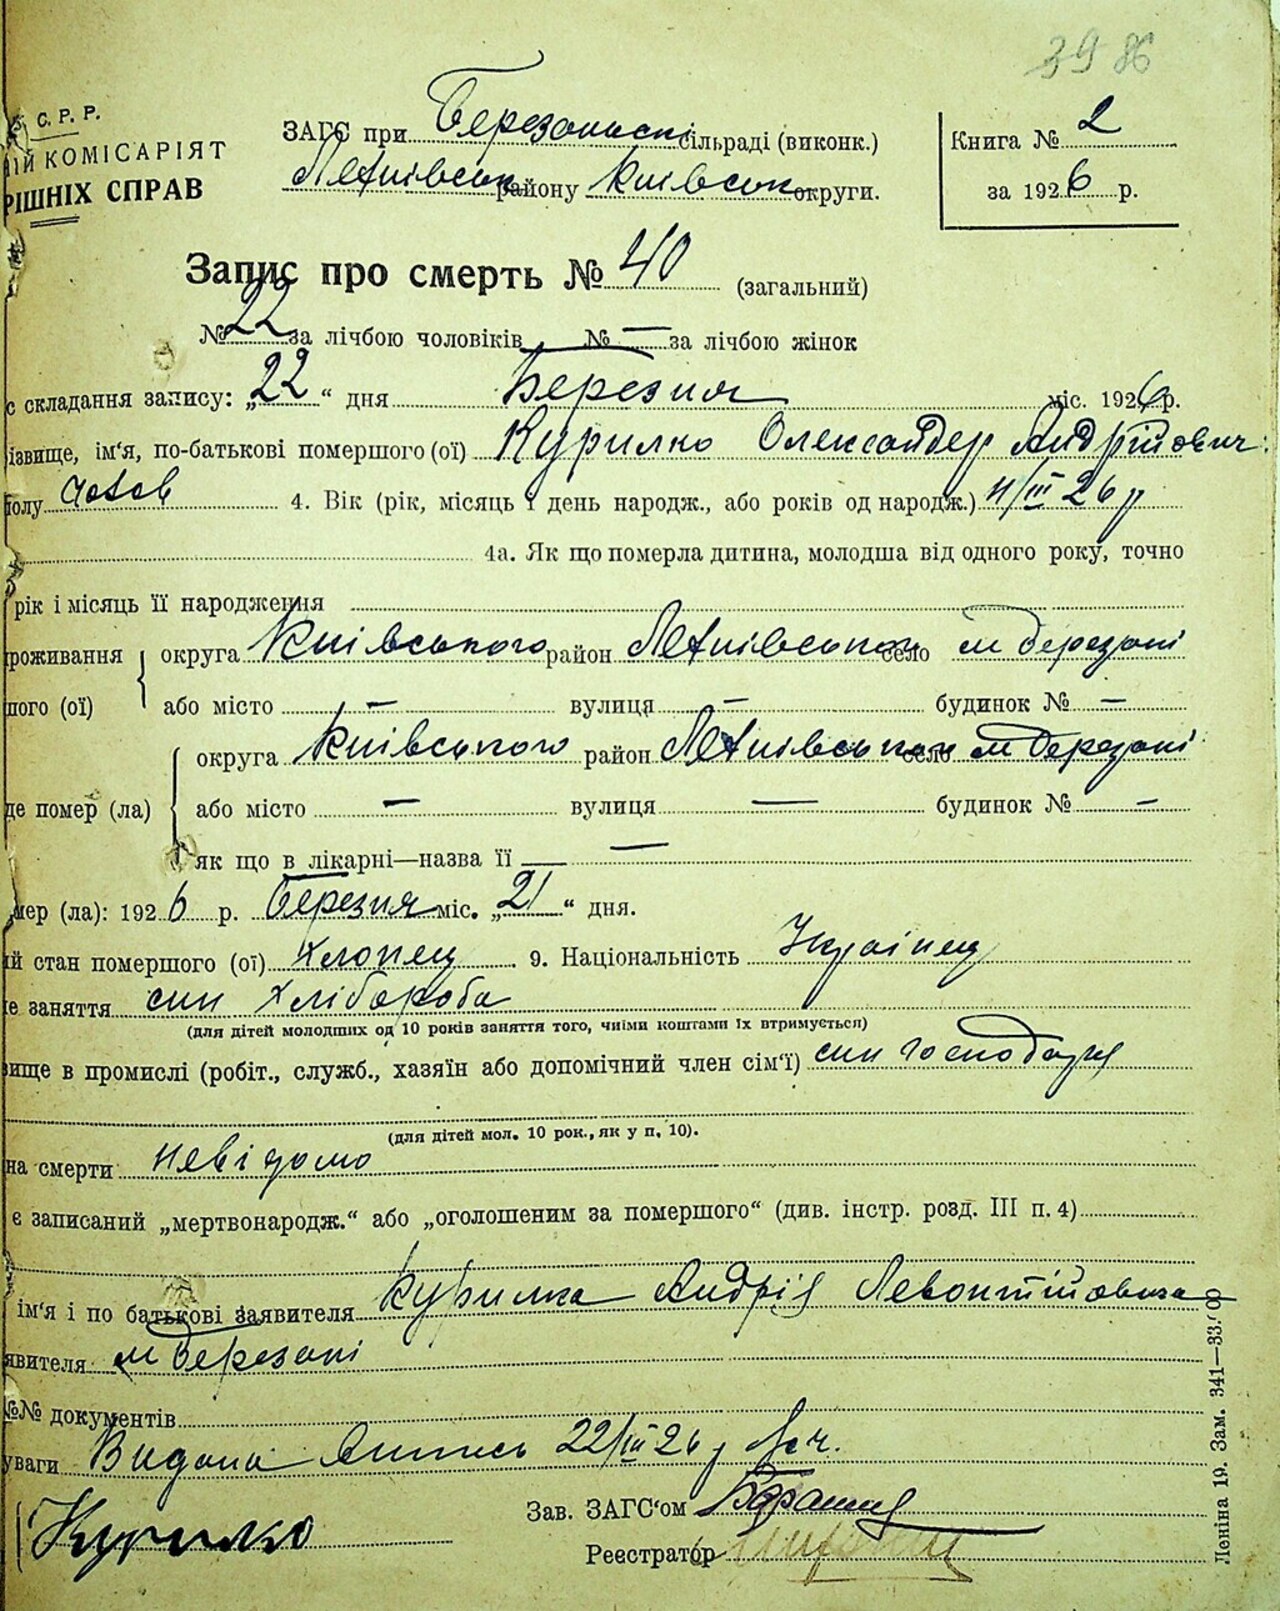 39 86
С. Р. Р.
ИЙ КОМІСАРІЯТ
РІШНІХ СПРАВ
ЗАГС при Березанські сільраді (виконк.)
району Київськ округи.
Книга № 2
за 1926 р.
Запис про смерть № 40 (загальний)
№ 22 за лічбою чоловіків № — за лічбою жінок
с складання запису: „22“ дня Березня міс. 1926 р.
ізвище, ім'я, по-батькові помершого (ої) Курилко Олександер Андрійович
полу чолов 4. Вік (рік, місяць і день народж., або років од народж.) 11/III 26 р
4а. Як що померла дитина, молодша від одного року, точно
рік і місяць її народження
роживання округа Київського район село м Березані
ного (ої) або місто — вулиця — будинок № —
округа Київського район село м Березані
де помер (ла) або місто — вулиця — будинок № —
як що в лікарні—назва її —
мер (ла): 1926 р. Березня міс. „21“ дня.
ий стан помершого (ої) хлопец 9. Національність Українец
е заняття син хлібороба
(для дітей молодших од 10 років заняття того, чиїми коштами їх втримується)
вище в промислі (робіт., служб., хазяїн або допомічний член сім'ї) син господаря
(для дітей мол. 10 рок., як у п. 10).
на смерти невідомо
є записаний „мертвонародж.“ або „оголошеним за помершого“ (див. інстр. розд. III п. 4)
ім'я і по батькові заявителя Курилка Андрія Левонтійовича
явителя м Березані
№№ документів
уваги Видана 22/III 26 р
Курилко
Зав. ЗАГС'ом
Реєстратор
Леніна 19. Зам. 341—33.000